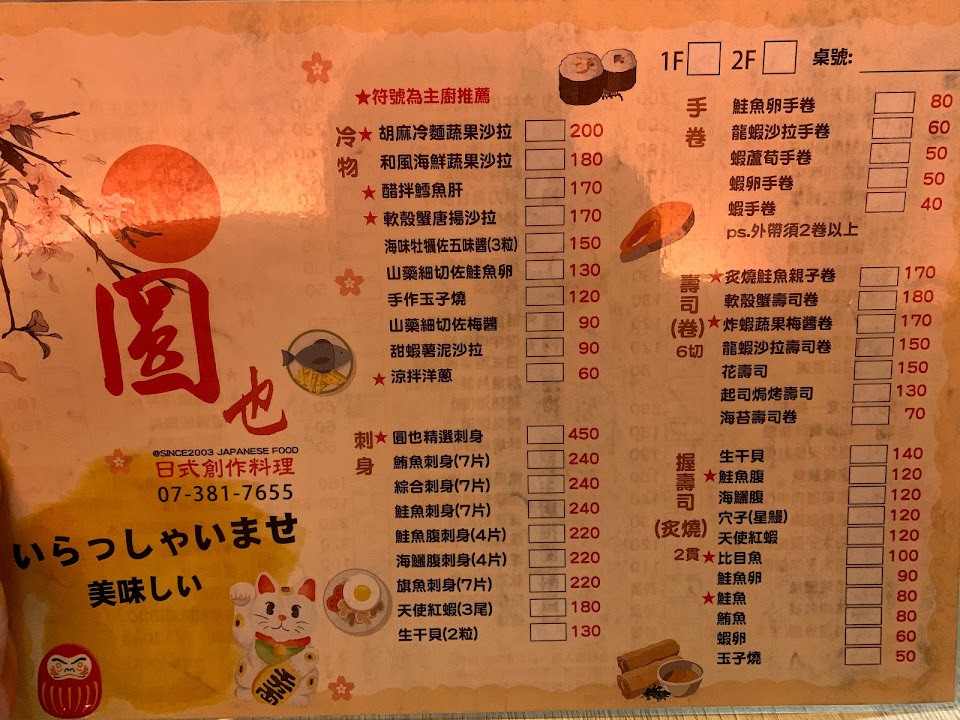 圓
也
@SINCE2003 JAPANESE FOOD
日式創作料理
07-381-7655
いらっしゃいませ
美味しい
★符號為主廚推薦
冷物
★胡麻冷麵蔬果沙拉 200
和風海鮮蔬果沙拉 180
★醋拌鱈魚肝 170
★軟殼蟹唐揚沙拉 170
海味牡犡佐五味醬(3粒) 150
山藥細切佐鮭魚卵 130
手作玉子燒 120
山藥細切佐梅醬 90
甜蝦薯泥沙拉 90
★涼拌洋蔥 60
刺身
★圓也精選刺身 450
鮪魚刺身(7片) 240
綜合刺身(7片) 240
鮭魚刺身(7片) 240
鮭魚腹刺身(4片) 220
海鱺腹刺身(4片) 220
旗魚刺身(7片) 220
天使紅蝦(3尾) 180
生干貝(2粒) 130
1F 2F 桌號:
手卷
鮭魚卵手卷 80
龍蝦沙拉手卷 60
蝦蘆荀手卷 50
蝦卵手卷 50
蝦手卷 40
ps.外帶須2卷以上
壽司(卷)
6切
★炙燒鮭魚親子卷 170
軟殼蟹壽司卷 180
★炸蝦蔬果梅醬卷 170
龍蝦沙拉壽司卷 150
花壽司 150
起司焗烤壽司 130
海苔壽司卷 70
握壽司
(炙燒)
2貫
生干貝 140
★鮭魚腹 120
海鱺腹 120
穴子(星鰻) 120
天使紅蝦 120
★比目魚 100
鮭魚卵 90
★鮭魚 80
鮪魚 80
蝦卵 60
玉子燒 50